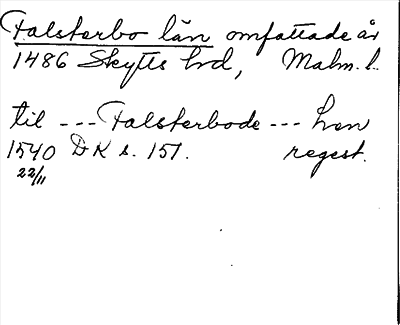 Falsterbo län omfattade år
1486 Skytts hrd, Malm. l.
til --- Falsterbode --- hen
1540 DK s. 151. regest.
22/11